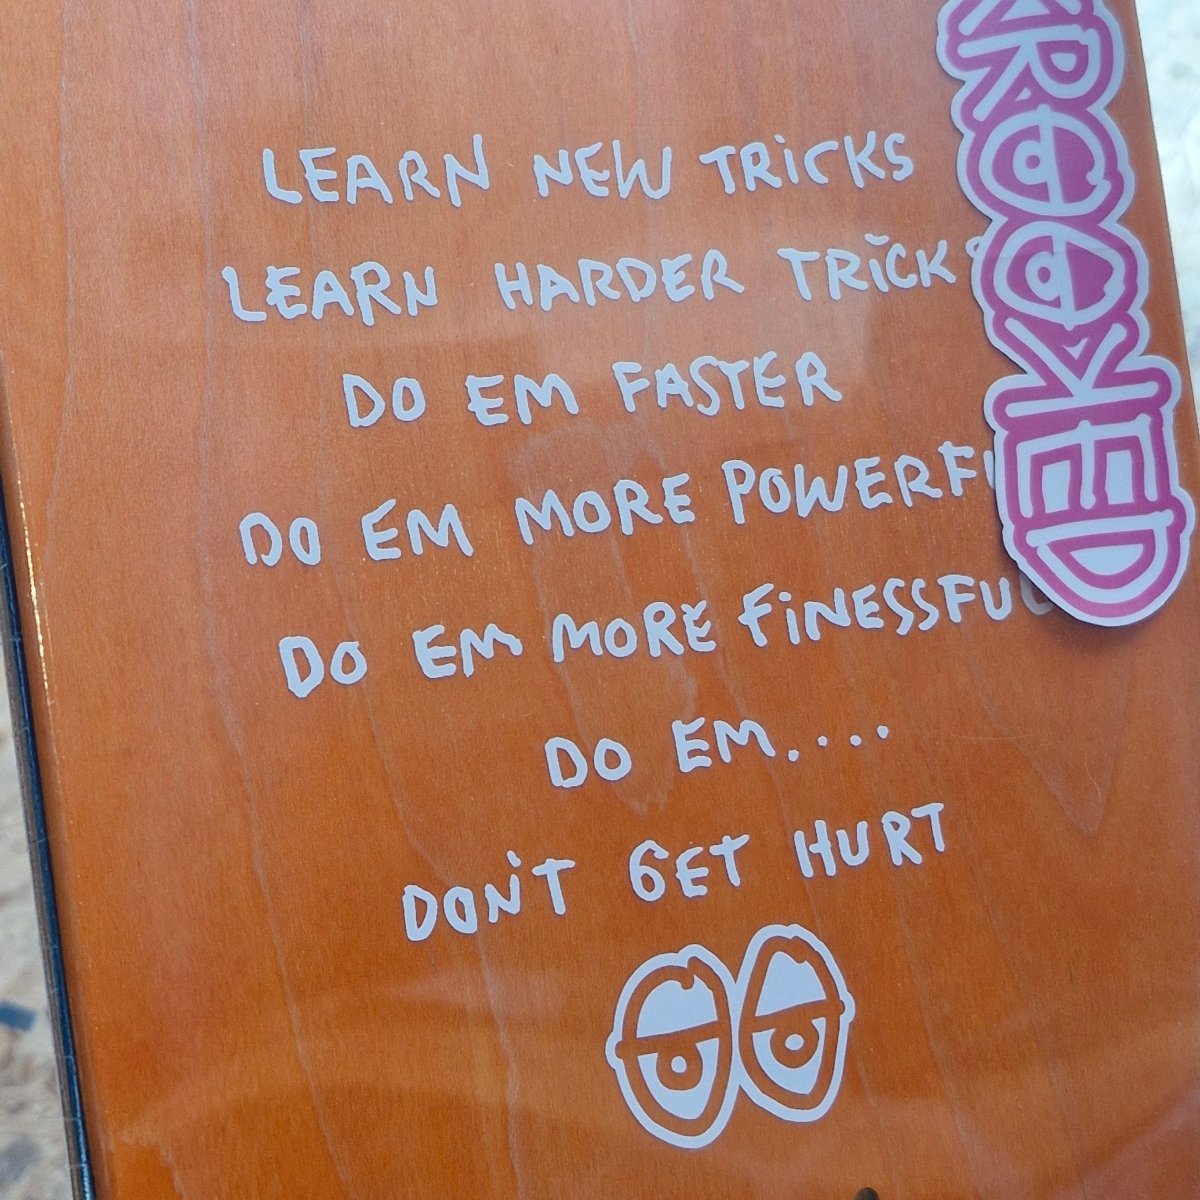 LEARN NEW TRiCKS
LEARN HARDER TRiCKS
DO EM FASTER
DO EM MORE POWERFU
DO EM MORE FiNESSFUL
DO EM....
DON'T GET HURT
KROOKED